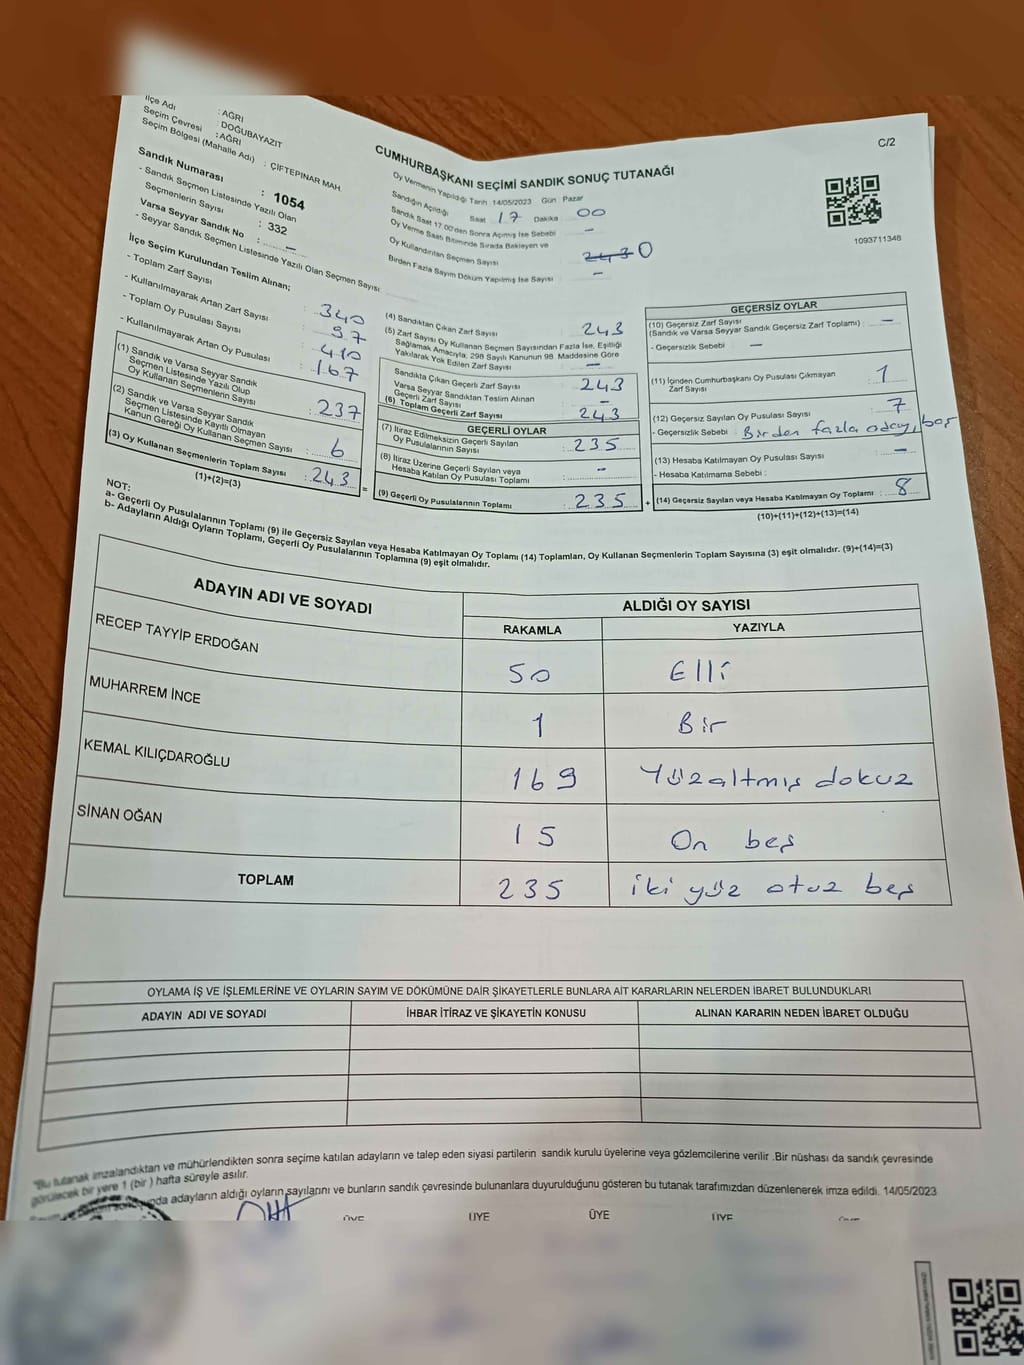 C/2
İlçe Adı : AĞRI
Seçim Çevresi : DOĞUBAYAZIT
Seçim Bölgesi (Mahalle Adı) : AĞRI
: ÇİFTEPINAR MAH.
Sandık Numarası : 1054
- Sandık Seçmen Listesinde Yazılı Olan
Seçmenlerin Sayısı : 332
Varsa Seyyar Sandık No : -
- Seyyar Sandık Seçmen Listesinde Yazılı Olan Seçmen Sayısı:
CUMHURBAŞKANI SEÇİMİ SANDIK SONUÇ TUTANAĞI
Oy Vermenin Yapıldığı Tarih 14/05/2023 Gün Pazar
Sandığın Açıldığı Saat 17 Dakika 00
Sandık Saat 17.00'den Sonra Açılmış İse Sebebi -
Oy Verme Saati Bitiminde Sırada Bekleyen ve
Oy Kullandırılan Seçmen Sayısı 0
Birden Fazla Sayım Döküm Yapılmış İse Sayısı -
1093711348
İlçe Seçim Kurulundan Teslim Alınan;
- Toplam Zarf Sayısı : 340
- Kullanılmayarak Artan Zarf Sayısı : 97
- Toplam Oy Pusulası Sayısı : 410
- Kullanılmayarak Artan Oy Pusulası : 167
(1) Sandık ve Varsa Seyyar Sandık
Seçmen Listesinde Yazılı Olup
Oy Kullanan Seçmenlerin Sayısı : 237
(2) Sandık ve Varsa Seyyar Sandık
Seçmen Listesinde Kayıtlı Olmayan
Kanun Gereği Oy Kullanan Seçmen Sayısı : 6
(3) Oy Kullanan Seçmenlerin Toplam Sayısı : 243
(1)+(2)=(3)
=
(4) Sandıktan Çıkan Zarf Sayısı 243
(5) Zarf Sayısı Oy Kullanan Seçmen Sayısından Fazla İse, Eşitliği
Sağlamak Amacıyla, 298 Sayılı Kanunun 98. Maddesine Göre
Yakılarak Yok Edilen Zarf Sayısı -
Sandıkta Çıkan Geçerli Zarf Sayısı 243
Varsa Seyyar Sandıktan Teslim Alınan
Geçerli Zarf Sayısı -
(6) Toplam Geçerli Zarf Sayısı 243
GEÇERLİ OYLAR
(7) İtiraz Edilmeksizin Geçerli Sayılan
Oy Pusulalarının Sayısı : 235
(8) İtiraz Üzerine Geçerli Sayılan veya
Hesaba Katılan Oy Pusulaları Toplamı : -
(9) Geçerli Oy Pusulalarının Toplamı : 235
+
GEÇERSİZ OYLAR
(10) Geçersiz Zarf Sayısı
(Sandık ve Varsa Seyyar Sandık Geçersiz Zarf Toplamı) : -
- Geçersizlik Sebebi : -
(11) İçinden Cumhurbaşkanı Oy Pusulası Çıkmayan
Zarf Sayısı : 1
(12) Geçersiz Sayılan Oy Pusulası Sayısı : 7
- Geçersizlik Sebebi : Birden fazla aday, boş
(13) Hesaba Katılmayan Oy Pusulası Sayısı : -
- Hesaba Katılmama Sebebi :
(14) Geçersiz Sayılan veya Hesaba Katılmayan Oy Toplamı : 8
(10)+(11)+(12)+(13)=(14)
NOT:
a- Geçerli Oy Pusulalarının Toplamı (9) ile Geçersiz Sayılan veya Hesaba Katılmayan Oy Toplamı (14) Toplamları, Oy Kullanan Seçmenlerin Toplam Sayısına (3) eşit olmalıdır. (9)+(14)=(3)
b- Adayların Aldığı Oyların Toplamı, Geçerli Oy Pusulalarının Toplamına (9) eşit olmalıdır.
ADAYIN ADI VE SOYADI ALDIĞI OY SAYISI
RAKAMLA YAZIYLA
RECEP TAYYİP ERDOĞAN 50 Elli
MUHARREM İNCE 1 Bir
KEMAL KILIÇDAROĞLU 169 Yüzaltmış dokuz
SİNAN OĞAN 15 On beş
TOPLAM 235 iki yüz otuz beş
OYLAMA İŞ VE İŞLEMLERİNE VE OYLARIN SAYIM VE DÖKÜMÜNE DAİR ŞİKAYETLERLE BUNLARA AİT KARARLARIN NELERDEN İBARET BULUNDUKLARI
ADAYIN ADI VE SOYADI İHBAR İTİRAZ VE ŞİKAYETİN KONUSU ALINAN KARARIN NEDEN İBARET OLDUĞU
"Bu tutanak imzalandıktan ve mühürlendikten sonra seçime katılan adayların ve talep eden siyasi partilerin sandık kurulu üyelerine veya gözlemcilerine verilir .Bir nüshası da sandık çevresinde
görülecek bir yere 1 (bir ) hafta süreyle asılır.
adayların aldığı oyların sayılarını ve bunların sandık çevresinde bulunanlara duyurulduğunu gösteren bu tutanak tarafımızdan düzenlenerek imza edildi. 14/05/2023
ÜYE ÜYE ÜYE ÜYE